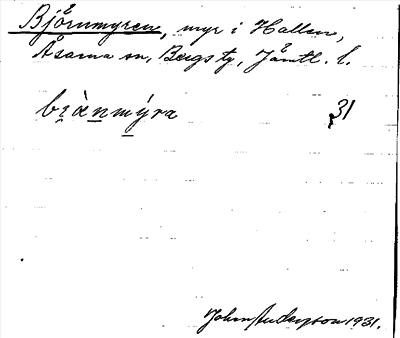 Björnmyren, myr i Hallen,
Åsarna sn, Bergs tg, Jämtl. l.
brànmýra 31
John Anderson 1931.